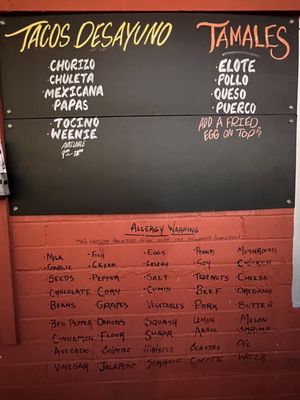 TACOS DESAYUNO
• CHORIZO
• CHULETA
• MEXICANA
• PAPAS
• TOCINO
• WEENIE
AVAILABLE
TAMALES
• ELOTE
• POLLO
• QUESO
• PUERCO
ADD A FRIED
EGG ON TOP?
ALLERGY WARNING
THIS FACILITY WITH THE FOLLOWING
• MILK • FISH • EGGS • PEANUTS MUSHROOMS
• GARLIC • CREAM • CELERY • SOY • CHICKEN
• SEEDS • PEPPER • SALT • TREENUTS • CHEESE
CHOCOLATE • CORN • CUMIN • BEEF • OREGANO
BEANS GRAPES VEGETABLES • PORK • BUTTER
BELL PEPPER ONIONS SQUASH LEMON MELON
CINNAMON FLOUR SUGAR SHRIMP
AVOCADO CHIPOTLE HIBISCUS CILANTRO OIL
VINEGAR JALAPEÑO SERRANO COFFEE WATER